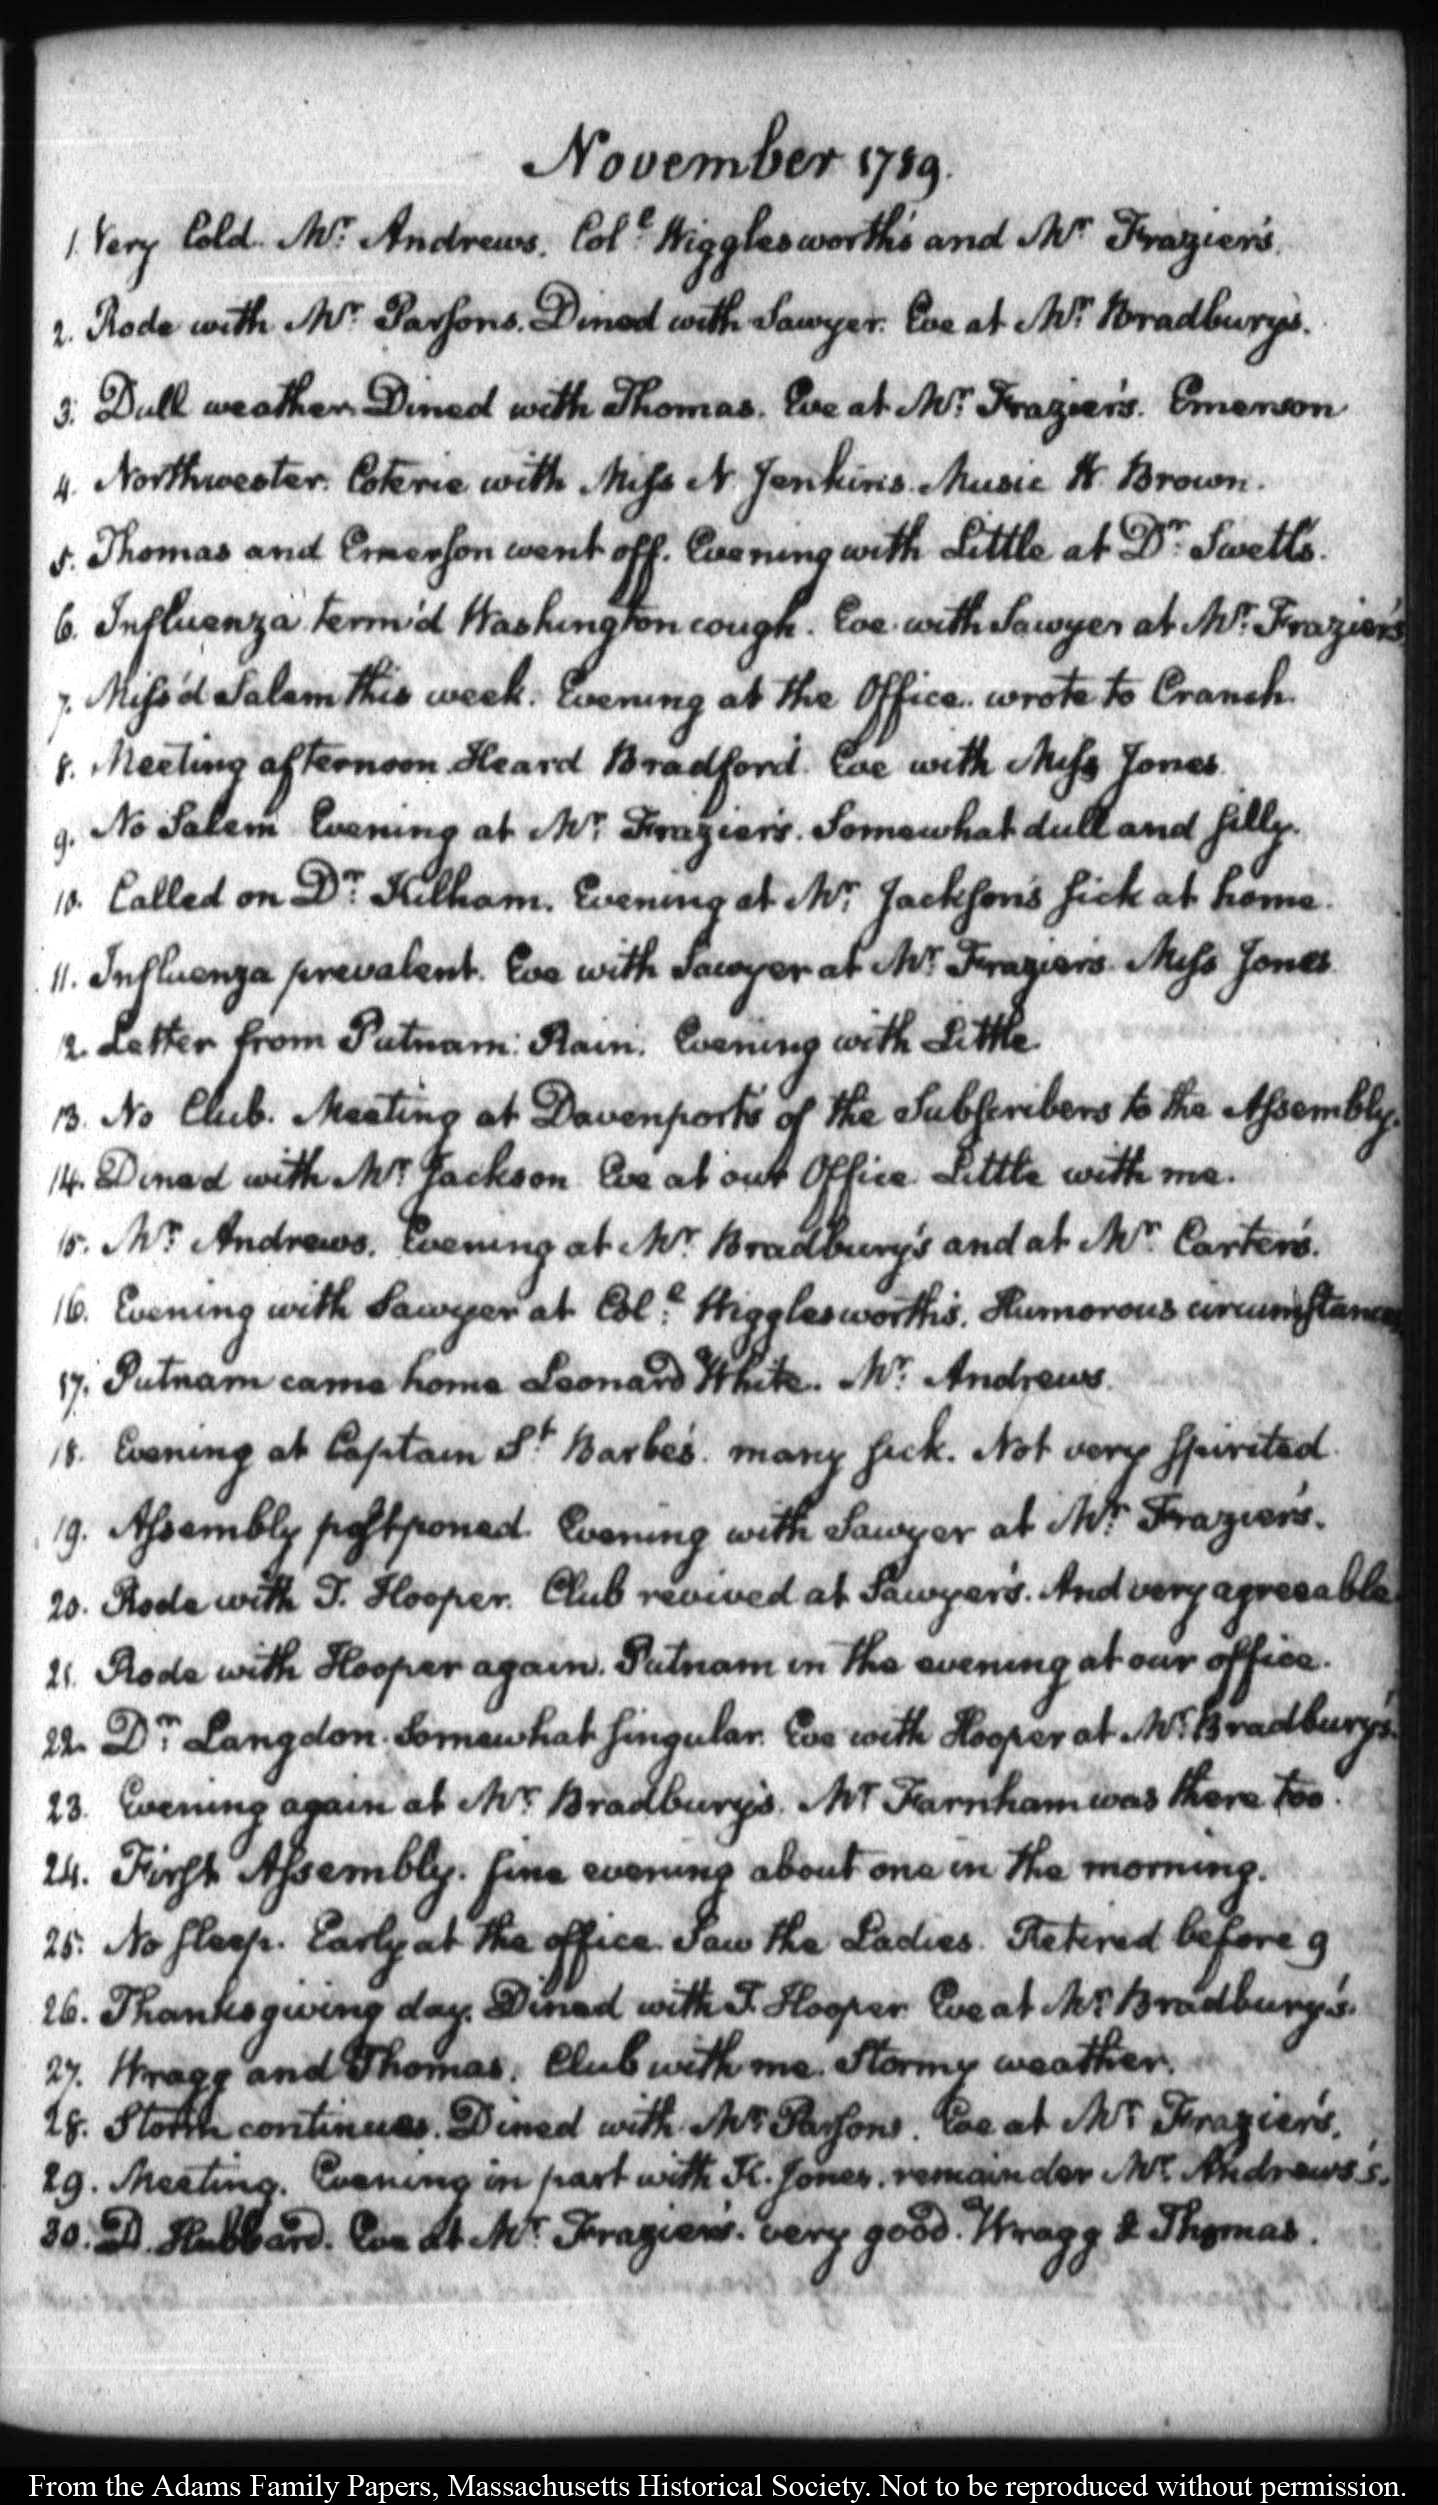 November 1789.
1. Very Cold. Mr. Andrews. Cole. Wigglesworth's and Mr. Frazier's.
2. Rode with Mr. Parsons. Dined with Sawyer. Eve at Mr. Bradbury's.
3. Dull weather. Dined with Thomas. Eve at Mr. Frazier's. Emerson
4. Northwester. Coterie with Miss N. Jenkins. Music H. Brown.
5. Thomas and Emerson went off. Evening with Little at Dr. Swett's.
6. Influenza term'd Washington cough. Eve with Sawyer at Mr. Frazier's
7. Miss'd Salem this week. Evening at the Office. wrote to Cranch.
8. Meeting afternoon. Heard Bradford. Eve with Miss Jones.
9. No Salem. Evening at Mr. Frazier's. Somewhat dull and silly.
10. Called on Dr. Kilham. Evening at Mr. Jackson's sick at home.
11. Influenza prevalent. Eve with Sawyer at Mr. Frazier's. Miss Jones
12. Letter from Putnam. Rain. Evening with Little.
13. No Club. Meeting at Davenport's of the Subscribers to the Assembly.
14. Dined with Mr. Jackson. Eve at our Office. Little with me.
15. Mr. Andrews. Evening at Mr. Bradbury's and at Mr. Carter's.
16. Evening with Sawyer at Cole. Wigglesworth's. Humorous circumstances
17. Putnam came home Leonard White. Mr. Andrews.
18. Evening at Captain St. Barbe's. many sick. Not very spirited.
19. Assembly postponed. Evening with Sawyer at Mr. Frazier's.
20. Rode with T. Hooper. Club revived at Sawyer's. And very agreeable
21. Rode with Hooper again. Putnam in the evening at our office.
22. Dr. Langdon. Somewhat singular. Eve with Hooper at Mr. Bradbury's.
23. Evening again at Mr. Bradbury's. Mr. Farnham was there too.
24. First Assembly. fine evening about one in the morning.
25. No sleep. Early at the office. Saw the Ladies. Retired before 9
26. Thanksgiving day. Dined with T. Hooper. Eve at Mr. Bradbury's.
27. Wragg and Thomas. Club with me. Stormy weather.
28. Storm continues. Dined with Mr. Parsons. Eve at Mr. Frazier's.
29. Meeting. Evening in part with K. Jones. remainder Mr. Andrews's.
30. D. Hubbard. Eve at Mr. Frazier's. very good. Wragg & Thomas.
From the Adams Family Papers, Massachusetts Historical Society. Not to be reproduced without permission.